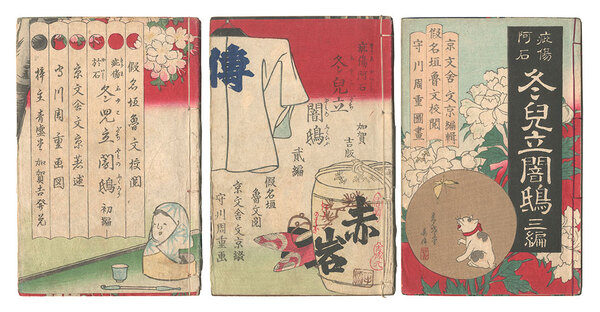 假名垣魯文校閲
疵傷
於石
冬兒立闇鴟 初編
京文舎文京著述
守川周重画図
梓主青盛堂加賀吉発兌
疵傷阿石
冬兒立
闇鴟
加賀
吉版
貳編
假名垣
魯文閲
京文舎文京綴
守川周重画
傳
赤岩
疵傷
阿石
冬兒立闇鴟 三編
京文舎文京編輯
假名垣魯文校閲
守川周重圖畫